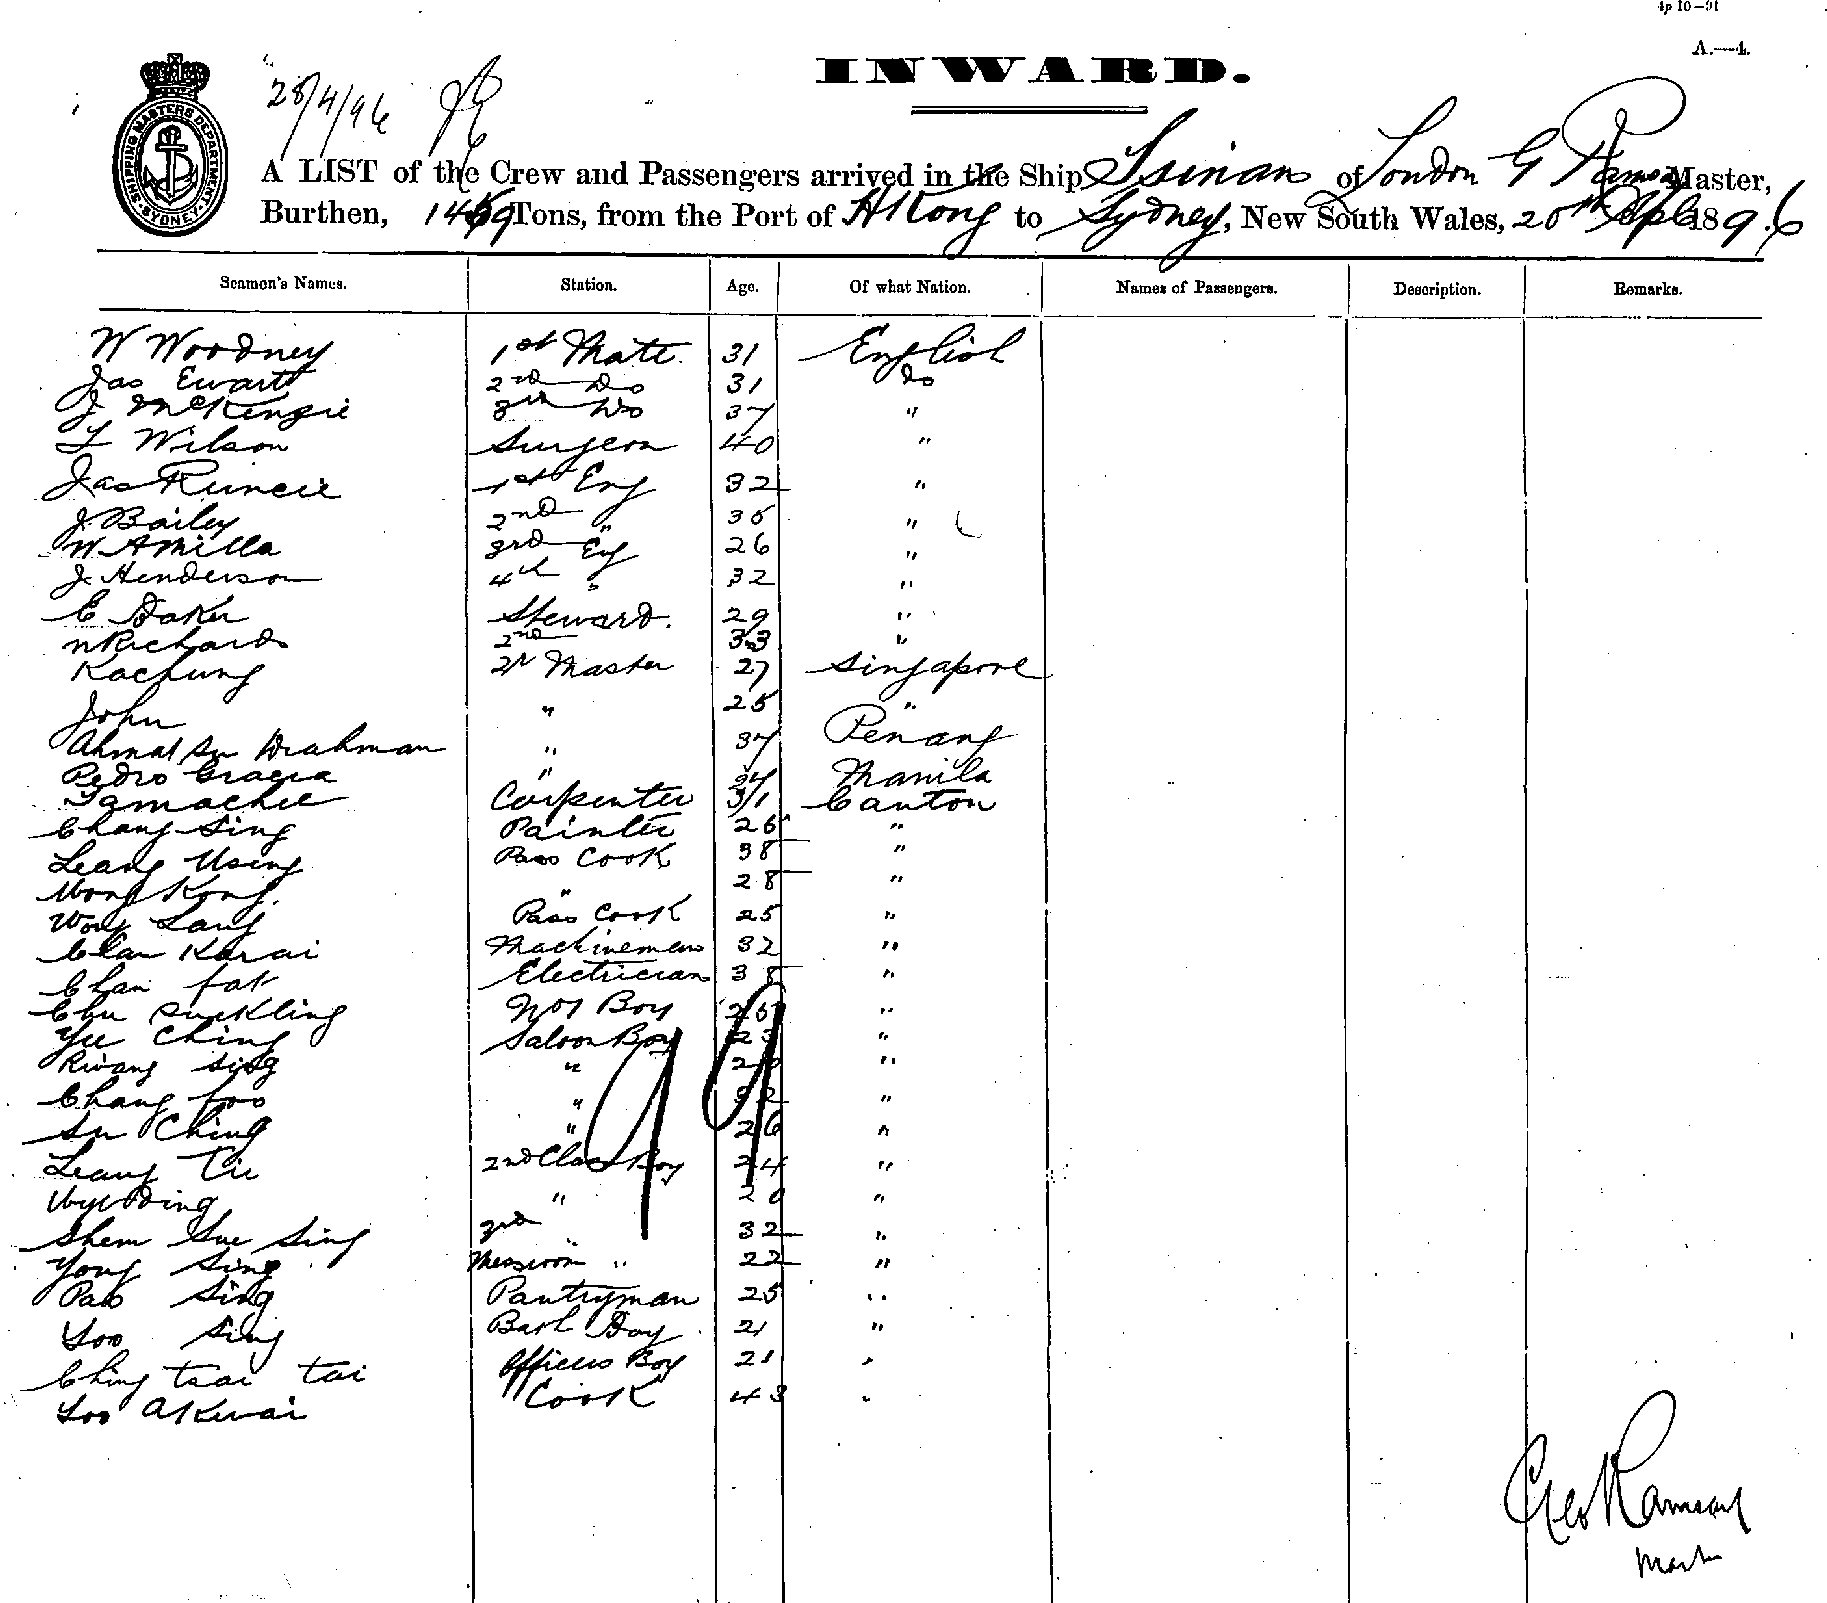 4p 10—91
A.—4.
INWARD.
28/4/96
SHIPPING MASTERS DEPARTMENT SYDNEY
A LIST of the Crew and Passengers arrived in the Ship Tsinan of London G Ramsay Master,
Burthen, 1459 Tons, from the Port of HKong to Sydney, New South Wales, 20th 1896
Seamen's Names. Station. Age. Of what Nation. Names of Passengers. Description. Remarks.
W Woodney 1st Mate. 31 English
Jas Ewart 2nd Do 31 Do
J McKenzie 3rd Do 37 "
T Wilson Surgeon 40 "
Jas Runcie 1st Eng 32 "
J Bailey 2nd " 35 "
W A Milla 3rd Eng 26 "
J Henderson 4th " 32 "
C Baker Steward. 29 "
N Richards 2nd 33 "
Kachung Qr Master 27 Singapore
John " 25 "
Ahmat Drahman " 37 Penang
Pedro Gracia " 27 Manila
Tamachee Carpenter 31 Canton
Chang Sing Painter 26 "
Leang Using Pass Cook 38 "
Wong Kong. " 28 "
Wong Lang Pass Cook 25 "
Chan Kwai Machineman 32 "
Chan fat Electrician 38 "
Chu Suckling No 1 Boy 25 "
Yee Ching Saloon Boy 23 "
Kwang Sing " "
Chang foo " 32 "
Su Ching " 26 "
Leang 2nd Class Boy 24 "
" 20 "
Shem Sue Sing 3rd " 32 "
Yong Sing Messroom " 22 "
Pao Sing Pantryman 25 "
Loo Sing Bath Boy 21 "
Ching tsai tai Officers Boy 21 "
Loo Akwai Cook 43 "
99
Geo Ramsay
Master